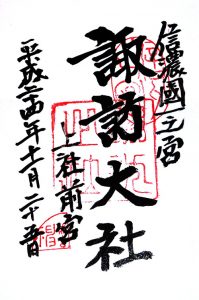 信濃國一之宮
諏訪大社
上社前宮
平成二十四年十一月二十五日